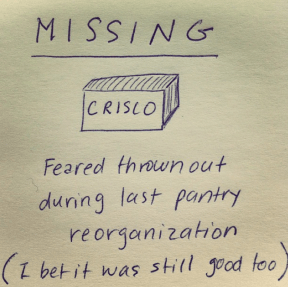 MISSING
CRISCO
Feared thrown out
during last pantry
reorganization
(I bet it was still good too)